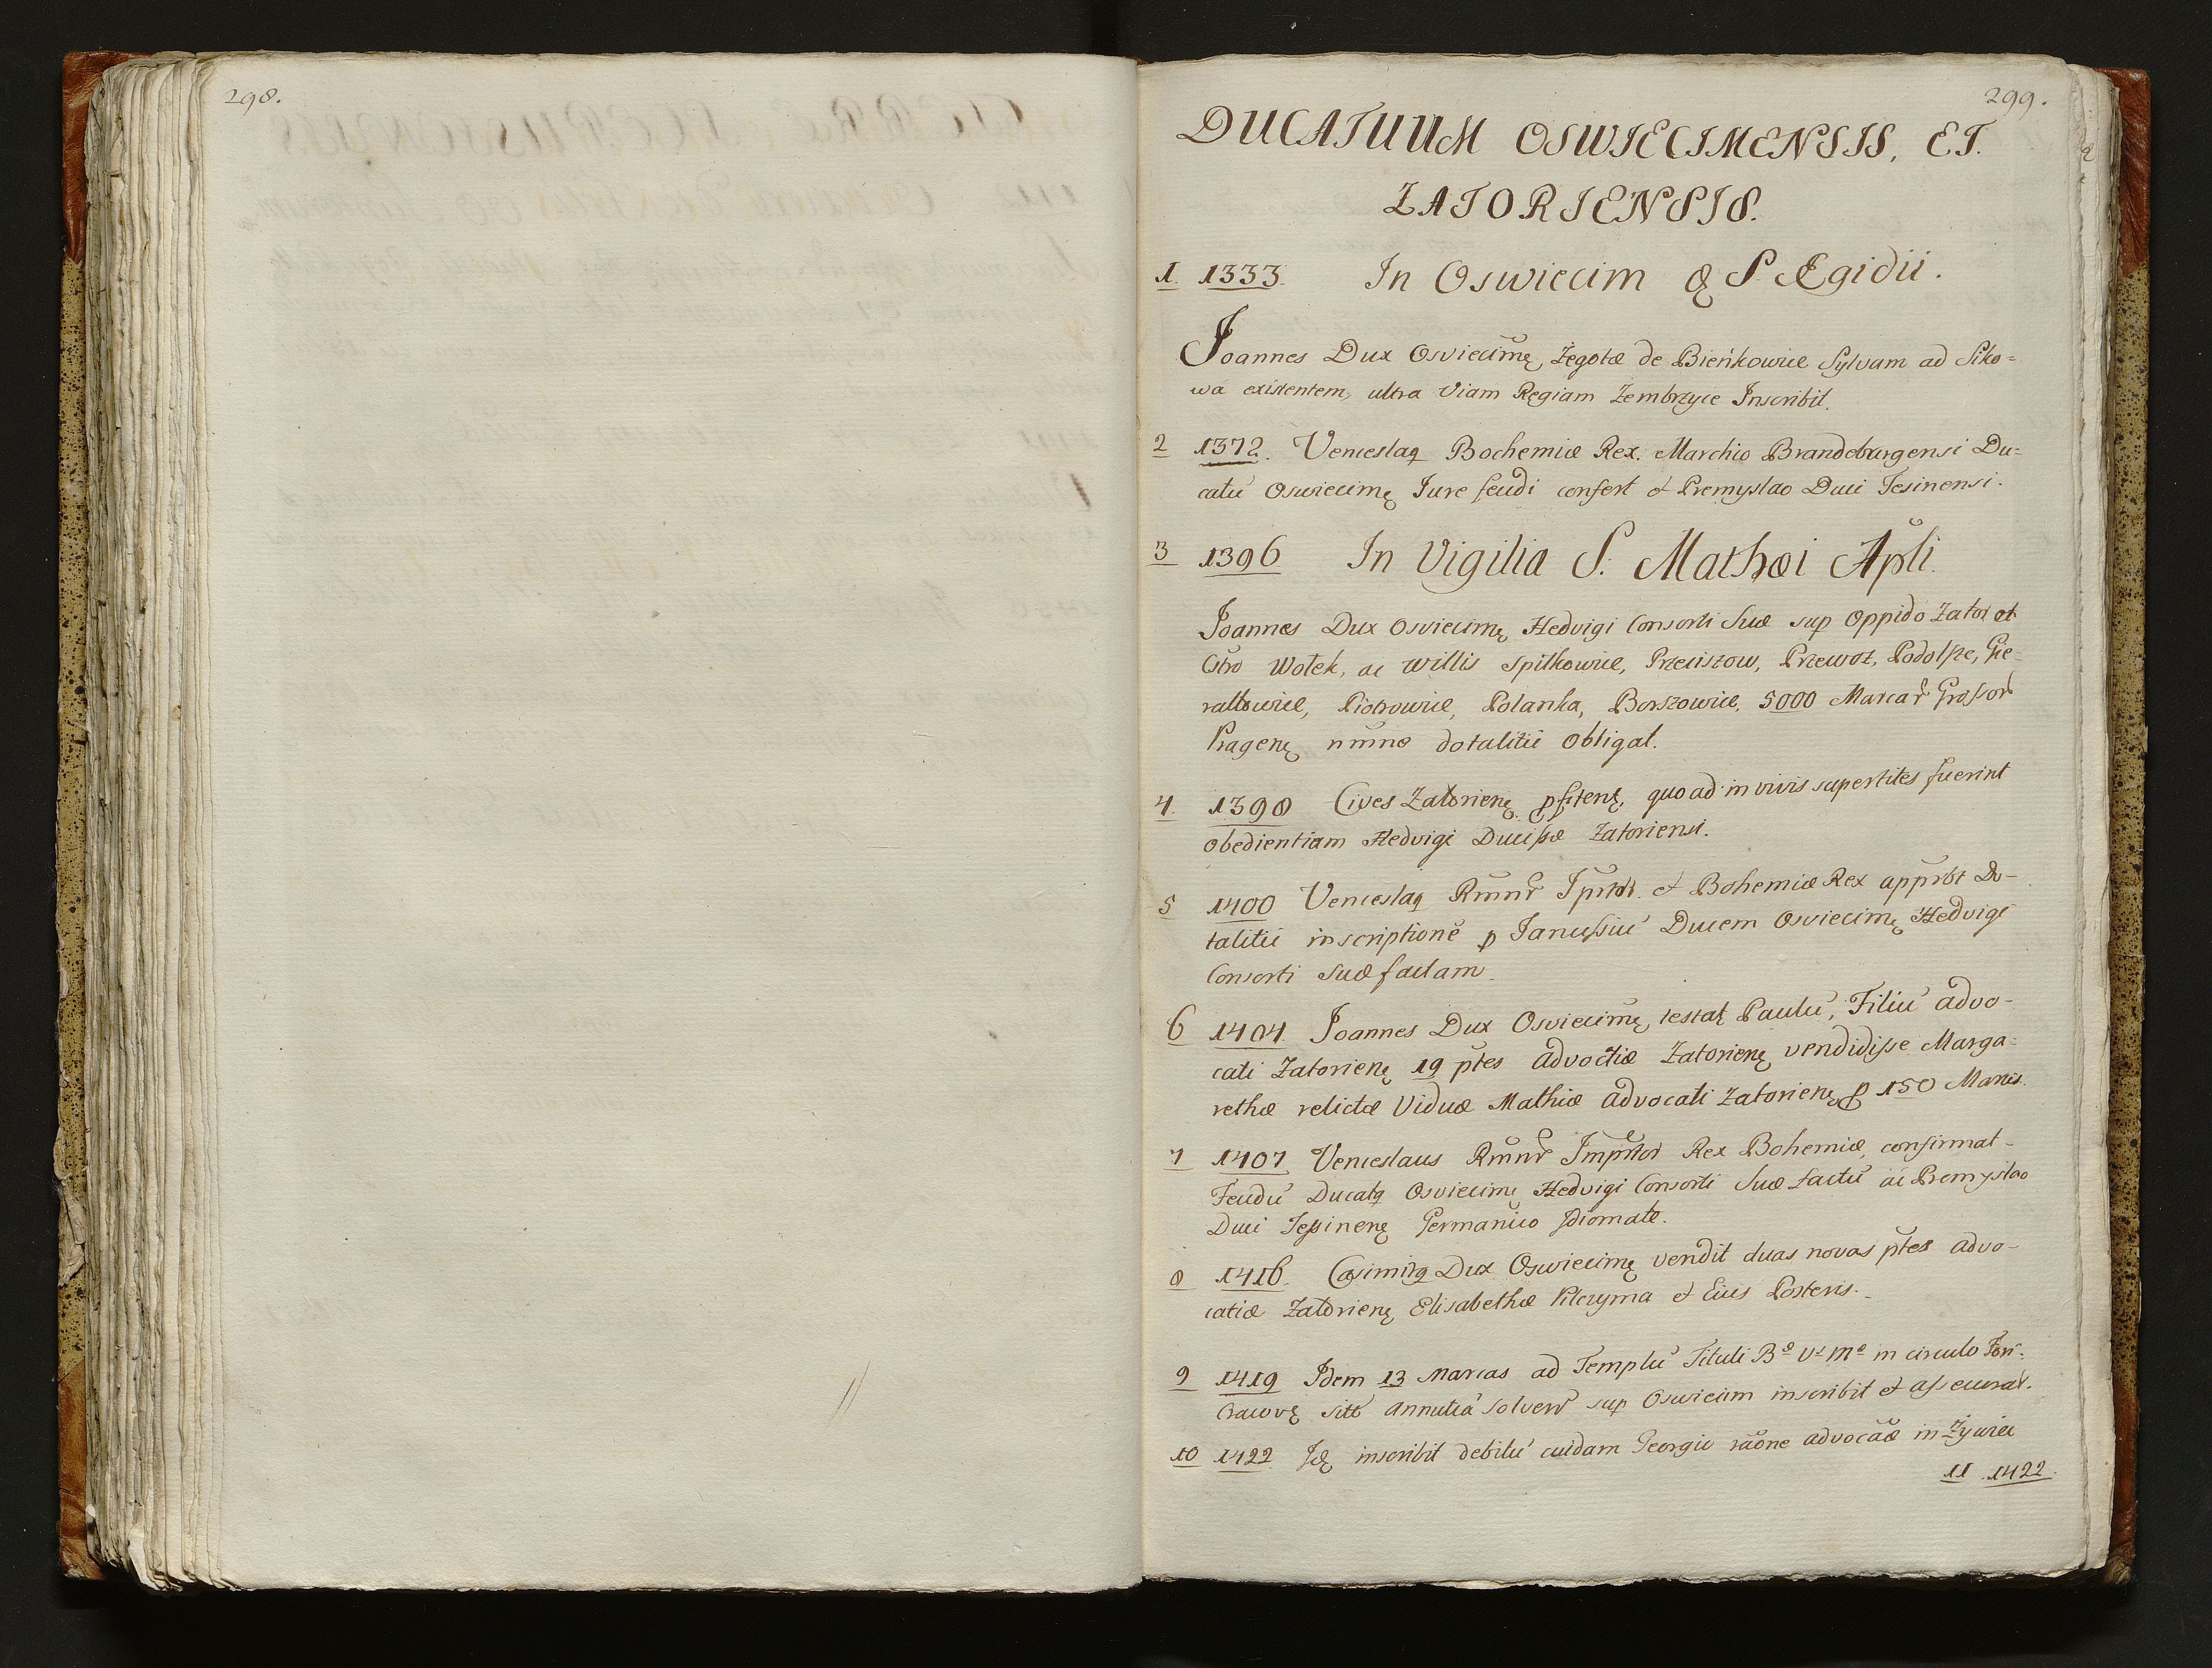 298.
299.
DUCATUUM OSWIECIMENSIS, ET.
ZATORIENSIS.
1. 1333. In Oswiecim S Ægidii.
Joannes Dux Osviecimę, Zegotæ de Bieńkowice Sylvam ad Siko=
wa existentem, ultra Viam Regiam Zembrzyce Inscribit.
2 1372. Venceslaq Bochemiæ Rex. Marchio Brandeburgensi Du=
catū Oswiecimę Iure feudi confert et Premyslao Duci Tesinensi.
3 1396 In Vigilia S. Mathæi Apli.
Joannes Dux Osviecimę Hedvigi Consorti Suæ sup Oppido Zator et
Wolek, ac willis Spitkowice, Przeciszow, Przewoz, Podolsze, Gie=
raltowice, Piotrowice, Polanka, Borszowice, 5000 Marcar̃ Grossor̃
Pragenę nm̃ne dotalitii obligat.
4. 1398 Cives Zatorienę pfitenę, quoad in vivis superstites fuerint
obedientiam Hedvigi Ducissæ Zatoriensi.
5 1400 Venceslaq Rmnr̃ Iprtor. et Bohemiæ Rex apprbt Do-
talitii inscriptionē p Ianussiū Ducem Osviecimę Hedvigi
Consorti Suæ factam.
6 1404. Joannes Dux Osviecimę, testaę Paulū, Filiū advo-
cati Zatorienę 19 ptes advoctiæ Zatorienę vendidisse Marga=
rethæ relictæ Viduæ Mathiæ advocati Zatorienę p 150 Marcis.
7 1407 Venceslaus Rmnr̃ Imprtor Rex Bohemiæ, confirmat-
Feudū Ducatq Osviecimę Hedvigi Consorti Suæ factū ac Premyslao
Duci Tessinenę Germanico Idiomate.
8 1416. Casimirq Dux Oswiecimę vendit duas novas ptes advo-
catiæ Zatorienę Elisabethæ Pilcryma et Eius Posteris.
9 1419 Idem 13 Marcas ad Templū Tituli Bᵉ Vˢ Mᵉ in circulo
Cracovę sitt annutiā solverr̃ sup Oswiecim inscribit et assecurat.
10 1422. Idę inscribit debitū cuidam Georgio rãone advocãæ in Żywiec
11. 1422.